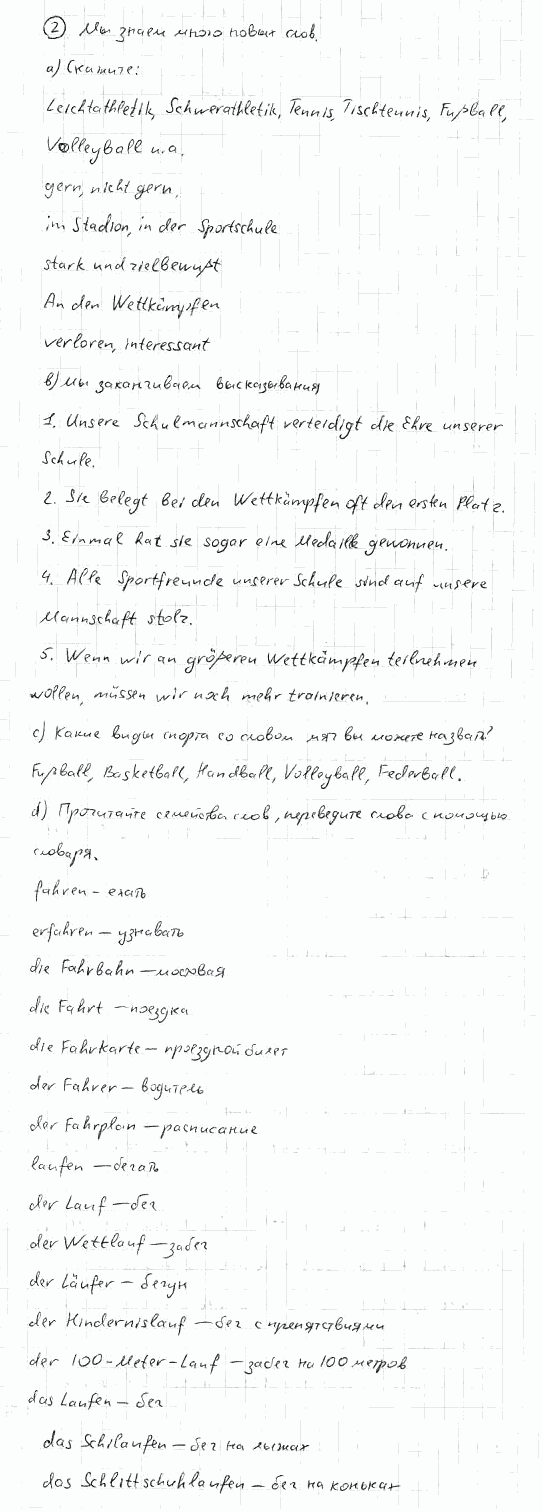 ② Мы знаем много новых слов.
a) Скажите:
Leichtathletik, Schwerathletik, Tennis, Tischtennis, Fußball,
Volleyball u.a.
gern, nicht gern,
im Stadion, in der Sportschule
stark und zielbewußt
An den Wettkämpfen
verloren, interessant
b) Мы заканчиваем высказывания
1. Unsere Schulmannschaft verteidigt die Ehre unserer
Schule.
2. Sie belegt bei den Wettkämpfen oft den ersten Platz.
3. Einmal hat sie sogar eine Medaille gewonnen.
4. Alle Sportfreunde unserer Schule sind auf unsere
Mannschaft stolz.
5. Wenn wir an größeren Wettkämpfen teilnehmen
wollen, müssen wir noch mehr trainieren.
c) Какие виды спорта со словом мяч вы можете назвать?
Fußball, Basketball, Handball, Volleyball, Federball.
d) Прочитайте семейства слов, переведите слова с помощью
словаря.
fahren – ехать
erfahren – узнавать
die Fahrbahn – мостовая
die Fahrt – поездка
die Fahrkarte – проездной билет
der Fahrer – водитель
der Fahrplan – расписание
laufen – бегать
der Lauf – бег
der Wettlauf – забег
der Läufer – бегун
der Hindernislauf – бег с препятствиями
der 100-Meter-Lauf – забег на 100 метров
das Laufen – бег
das Schilaufen – бег на лыжах
das Schlittschuhlaufen – бег на коньках